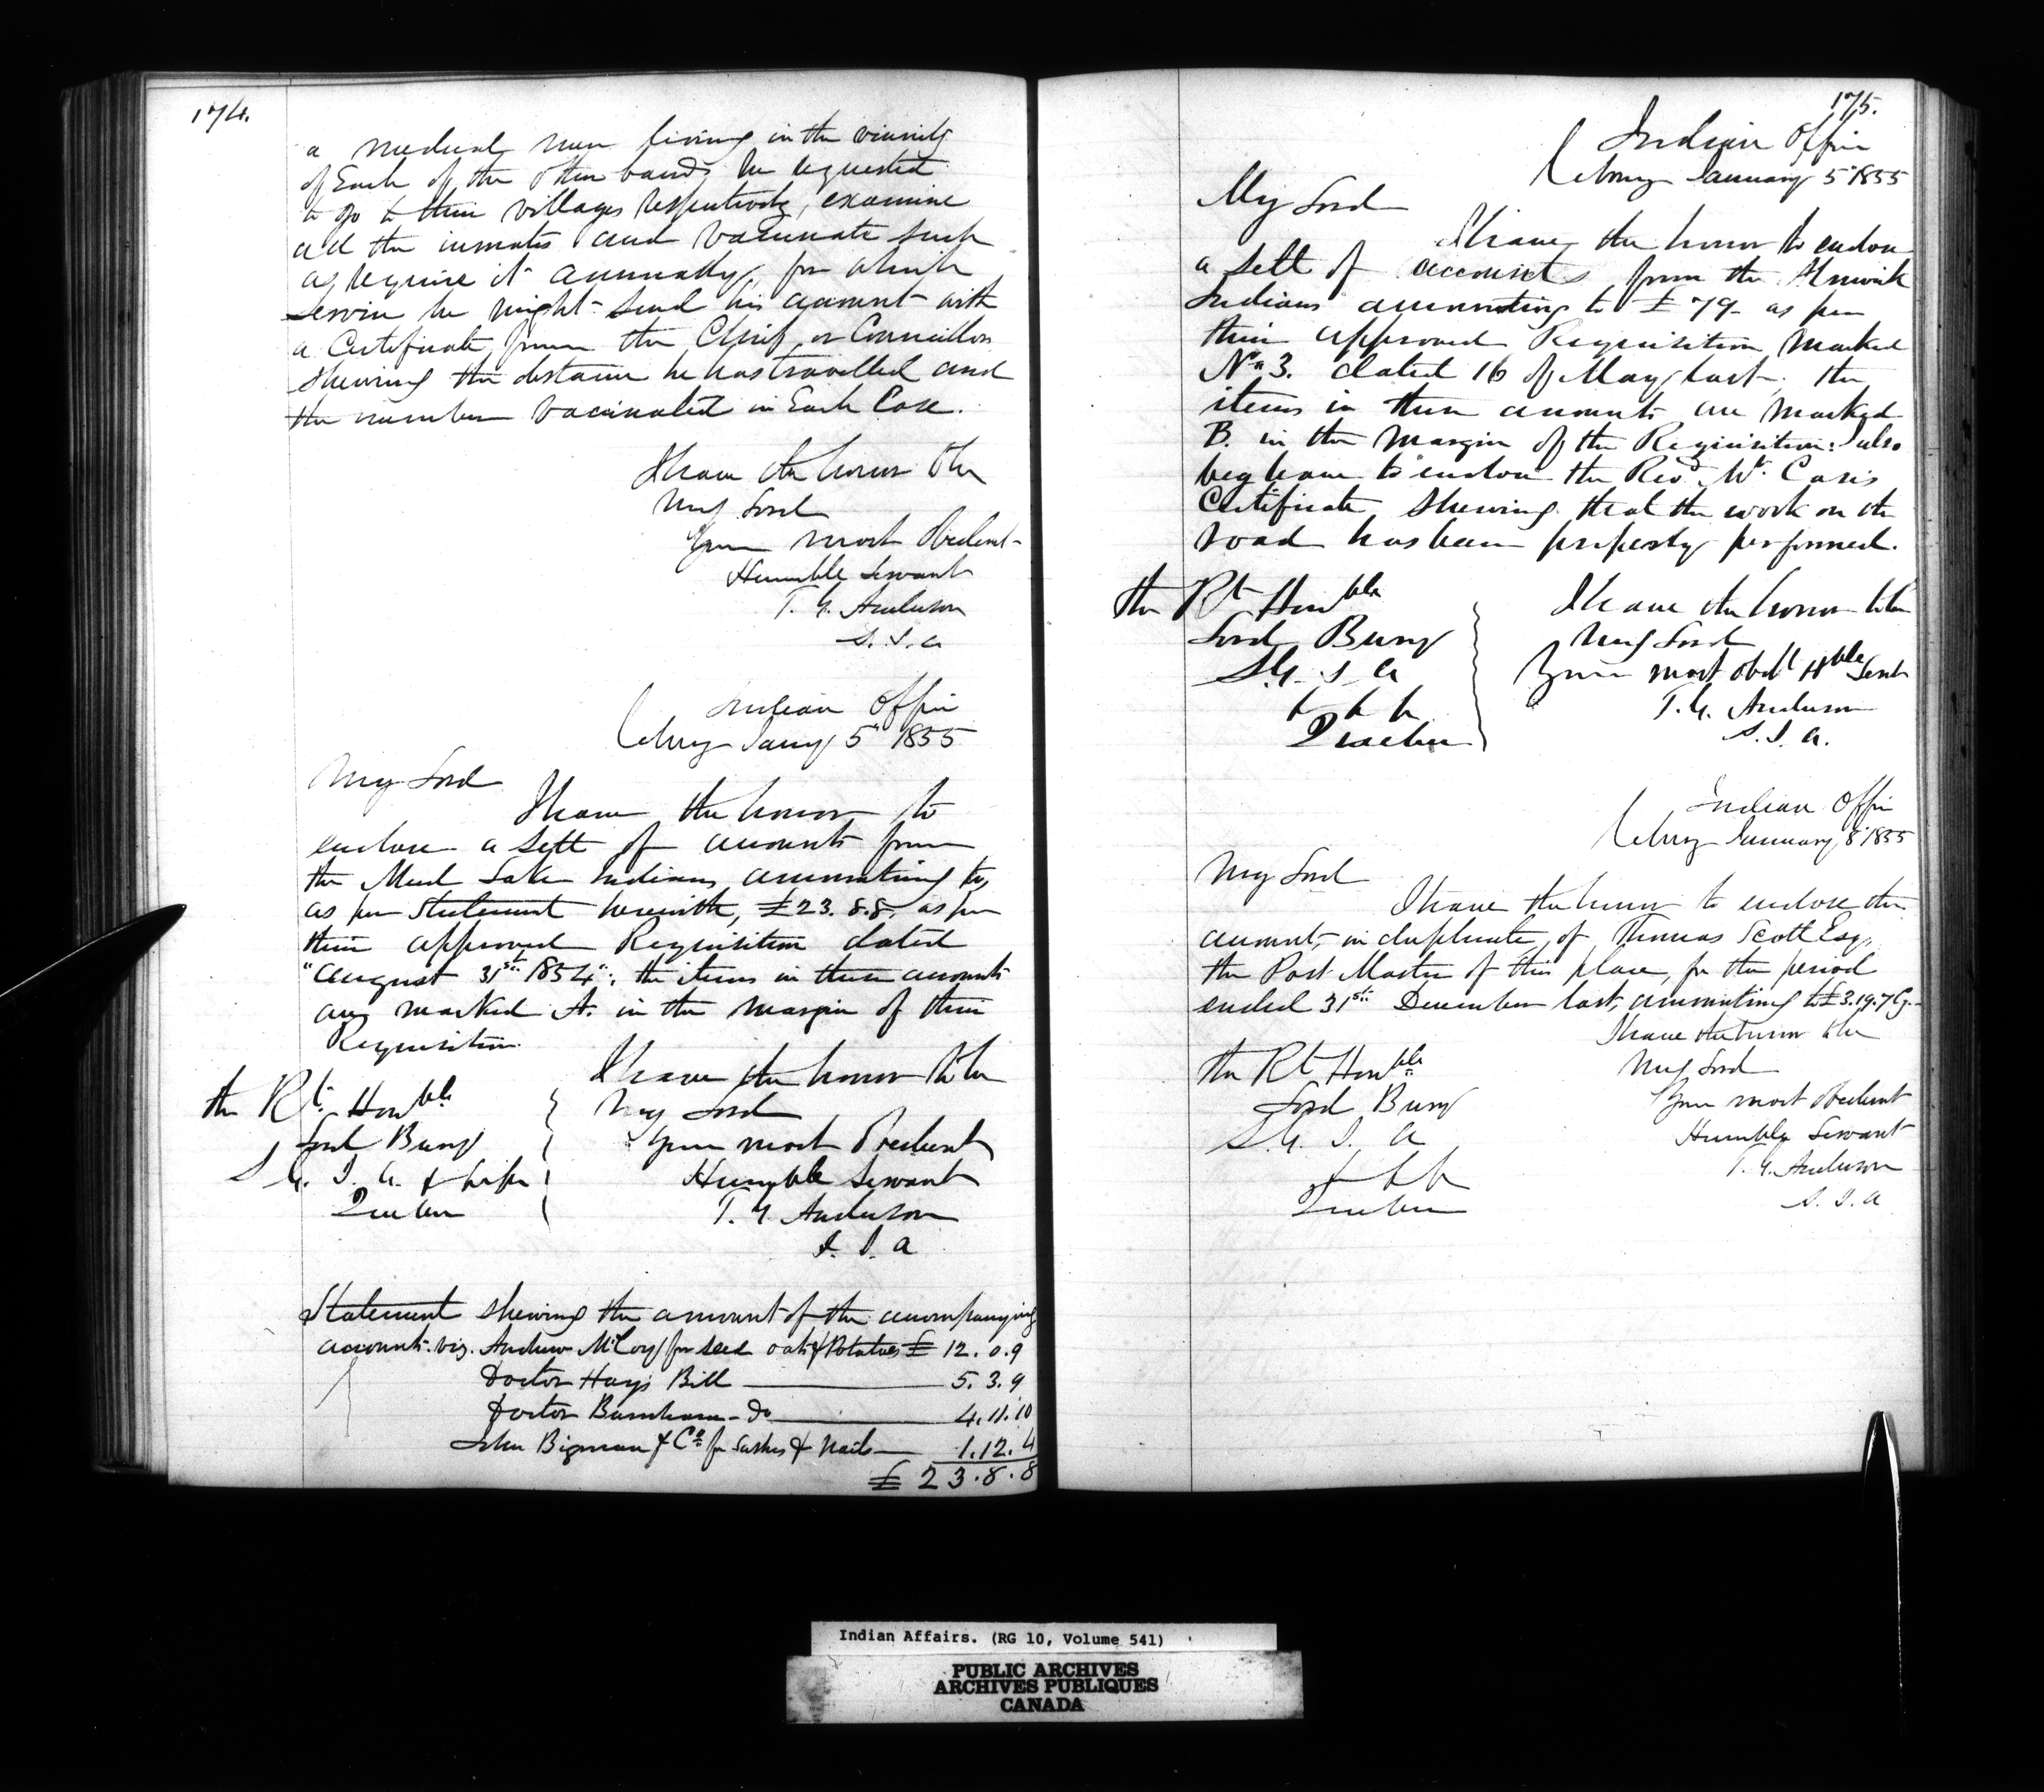 174.
a medical man living in the vicinity
of Each of the other bands be requested
to go to their villages respectively, examine
all the inmates and vaccinate such
as require it annually, for which
service he might send his account with
a Certificate from the Chief or Councillors
shewing the distance he has travelled and
the number vaccinated in Each Case.
I have the honor to be
My Lord
Your most Obedient
Humble Servant
T. G. Anderson
S. I. A
Indian Office
Cobourg Jany 5th 1855
My Lord
I have the honor to
enclose a sett of accounts from
the Mud Lake Indians amounting to,
as per statement herewith, £23.8.8. as per
their approved Requisition dated
"August 31st 1854": the items in these accounts
are marked A. in the margin of their
Requisition.
I have the honor to be
My Lord
Your most Obedient
Humble Servant
T. G. Anderson
S. I. A
the Rt. Honble
Lord Bury
S. G. I. A.
Quebec
Statement shewing the amount of the accompanying
accounts. viz. Andrew McCoy for seed oats & Potatoes £ 12.0.9
Doctor Hays Bill 5.3.9
Doctor Burnham Do 4.11.10
John Bigman & Co. for Sashes & Nails 1.12.4
£ 23.8.8
175.
Indian Office
Cobourg January 5th 1855
My Lord
I have the honor to enclose
a sett of accounts from the Alnwick
Indians amounting to £79 as per
their approved Requisition marked
No 3. dated 16 of May last. the
items in these accounts are marked
B. in the margin of the Requisition: I also
beg leave to enclose the Revd. Wm. Case's
Certificate shewing that the work on the
road has been properly performed.
I have the honor to be
My Lord
Your most Obdt Hble Servt
T. G. Anderson
S. I. A.
the Rt Honble
Lord Bury
S. G. I A
& & &
Quebec
Indian Office
Cobourg January 8th 1855
My Lord
I have the honor to enclose the
account, in duplicate, of Thomas Scott Esq.
the Post Master of this place, for the period
ended 31st December last, amounting to £3.19.7 Cy.
I have the honor to be
My Lord
Your most Obedient
Humble Servant
T. G. Anderson
S. I. A
the Rt Honble
Lord Bury
S. G. I. A
& & &
Quebec
Indian Affairs. (RG 10, Volume 541)
PUBLIC ARCHIVES
ARCHIVES PUBLIQUES
CANADA